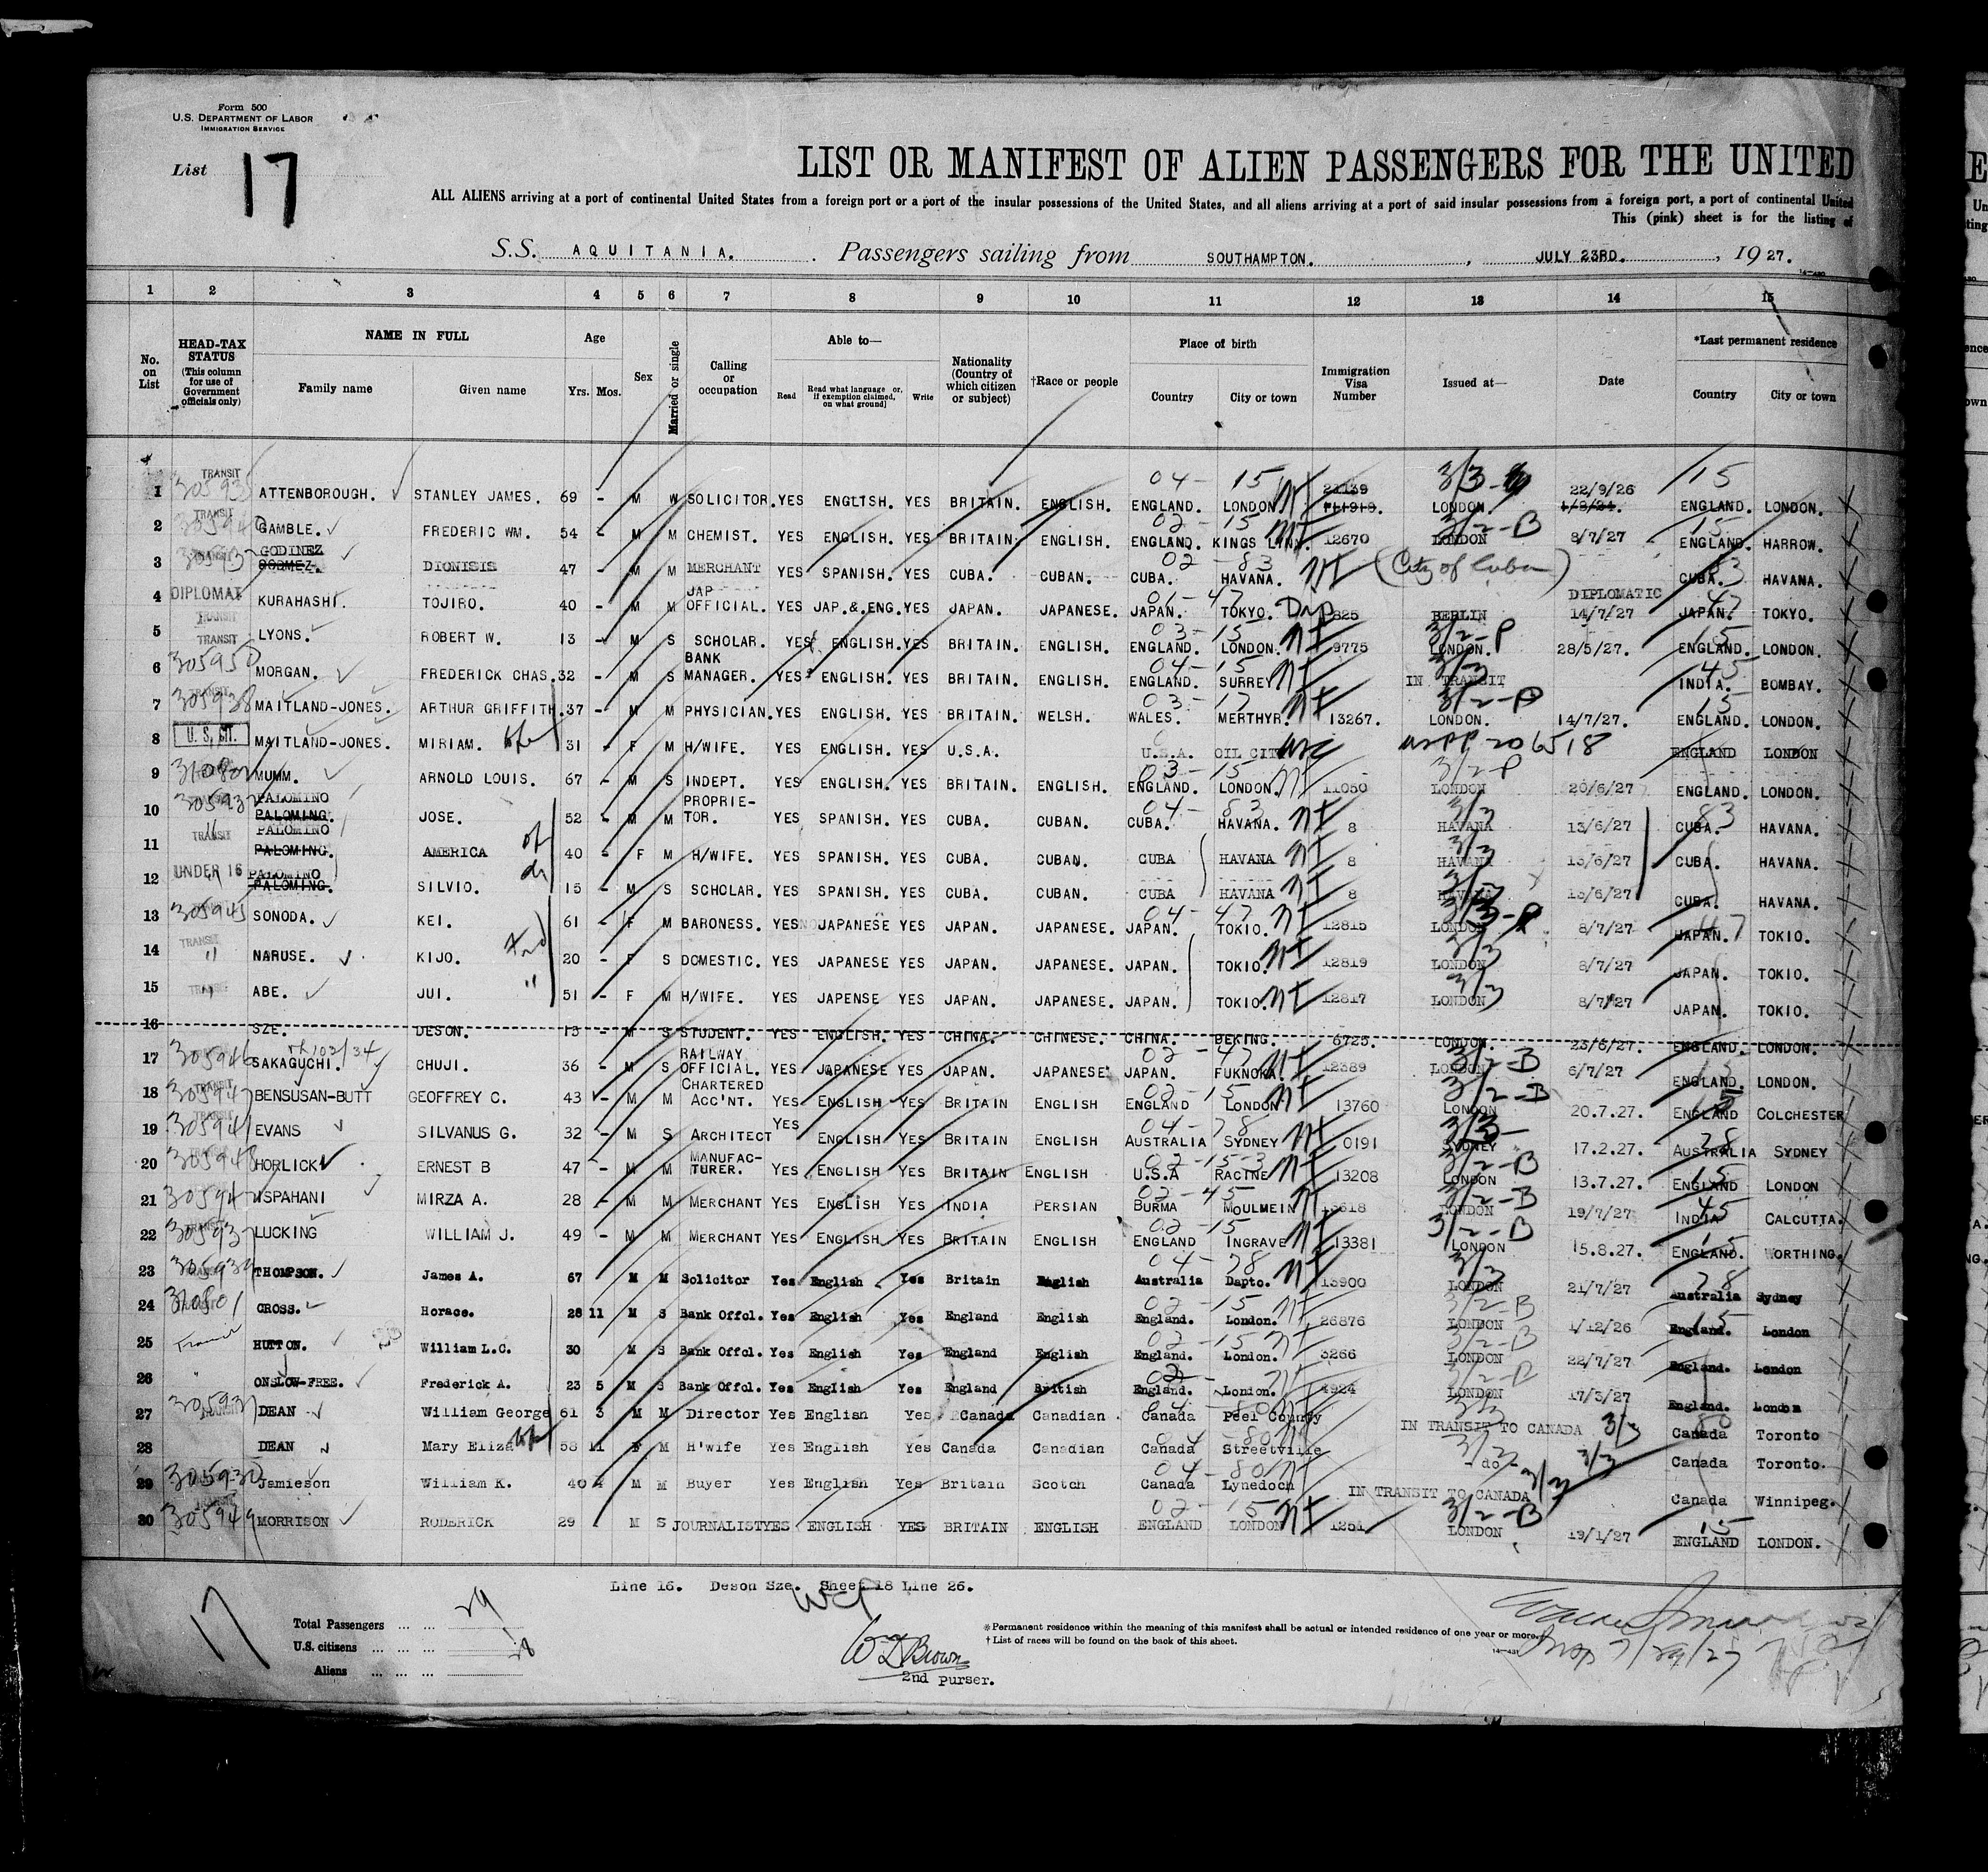 Form 500
U.S. DEPARTMENT OF LABOR
IMMIGRATION SERVICE
List 17
LIST OR MANIFEST OF ALIEN PASSENGERS FOR THE UNITED
ALL ALIENS arriving at a port of continental United States from a foreign port or a port of the insular possessions of the United States, and all aliens arriving at a port of said insular possessions from a foreign port, a port of continental United
This (pink) sheet is for the listing of
S.S. AQUITANIA. Passengers sailing from SOUTHAMPTON. , JULY 23RD. , 1927.
1 2 3 4 5 6 7 8 9 10 11 12 13 14 15
No. on List
HEAD-TAX STATUS (This column for use of Government officials only)
NAME IN FULL Family name Given name
Age Yrs. Mos.
Sex
Married or single
Calling or occupation
Able to— Read Read what language or, if exemption claimed, on what ground] Write
Nationality (Country of which citizen or subject)
†Race or people
Place of birth Country City or town
Immigration Visa Number
Issued at—
Date
*Last permanent residence Country City or town
1 TRANSIT ATTENBOROUGH. STANLEY JAMES. 69 - M W SOLICITOR. YES ENGLISH. YES BRITAIN. ENGLISH. 04-15 ENGLAND. LONDON 21139 LONDON. 22/9/26 15 ENGLAND. LONDON.
2 TRANSIT GAMBLE. FREDERIC WM. 54 - M M CHEMIST. YES ENGLISH. YES BRITAIN. ENGLISH. 02-15 ENGLAND. KINGS LYNN. 12670 3/2-B LONDON 8/7/27 15 ENGLAND. HARROW.
3 GODINEZ GODMEZ. DIONISIS 47 - M M MERCHANT YES SPANISH. YES CUBA. CUBAN. 02-83 CUBA. HAVANA. (City of Cuba) 83 CUBA. HAVANA.
4 DIPLOMAT KURAHASHI. TOJIRO. 40 - M M JAP OFFICIAL. YES JAP.&.ENG. YES JAPAN. JAPANESE. 01-47 JAPAN. TOKYO. Dip 825 BERLIN DIPLOMATIC 14/7/27 47 JAPAN. TOKYO.
5 TRANSIT LYONS. ROBERT W. 13 - M S SCHOLAR. YES ENGLISH. YES BRITAIN. ENGLISH. 03-15 ENGLAND. LONDON. 9775 3/2-P LONDON. 28/5/27. 15 ENGLAND. LONDON.
6 305950 MORGAN. FREDERICK CHAS. 32 - M S BANK MANAGER. YES ENGLISH. YES BRITAIN. ENGLISH. 04-15 ENGLAND. SURREY 3/3 IN TRANSIT 45 INDIA. BOMBAY.
7 305938 MAITLAND-JONES. ARTHUR GRIFFITH. 37 - M M PHYSICIAN. YES ENGLISH. YES BRITAIN. WELSH. 03-17 WALES. MERTHYR. 13267. 3/2-P LONDON. 14/7/27. 15 ENGLAND. LONDON.
8 U.S. CIT. MAITLAND-JONES. MIRIAM. wife 31 - F M H/WIFE. YES ENGLISH. YES U.S.A. U.S.A. OIL CITY USC USPP 206518 ENGLAND LONDON
9 MUMM. ARNOLD LOUIS. 67 - M S INDEPT. YES ENGLISH. YES BRITAIN. ENGLISH. 03-15 ENGLAND. LONDON. 11050 3/2-P LONDON 20/6/27 ENGLAND. LONDON.
10 PALOMINO PALOMING. JOSE. 52 - M M PROPRIE-TOR. YES SPANISH. YES CUBA. CUBAN. 04-83 CUBA. HAVANA. 8 3/3 HAVANA 13/6/27 83 CUBA. HAVANA.
11 TRANSIT PALOMINO PALOMING. AMERICA 40 - F M H/WIFE. YES SPANISH. YES CUBA. CUBAN. CUBA HAVANA 8 3/3 HAVANA 13/6/27 CUBA. HAVANA.
12 UNDER 16 PALOMINO PALOMING. SILVIO. 15 - M S SCHOLAR. YES SPANISH. YES CUBA. CUBAN. CUBA HAVANA 8 3/3 HAVANA 13/6/27 CUBA. HAVANA.
13 305945 SONODA. KEI. 61 - F M BARONESS. YES JAPANESE YES JAPAN. JAPANESE. 04-47 JAPAN. TOKIO. 12815 LONDON 8/7/27 47 JAPAN. TOKIO.
14 TRANSIT " NARUSE. KIJO. 20 - F S DOMESTIC. YES JAPANESE YES JAPAN. JAPANESE. JAPAN. TOKIO. 12819 3/3 LONDON 8/7/27 JAPAN. TOKIO.
15 ABE. JUI. " 51 - F M H/WIFE. YES JAPENSE YES JAPAN. JAPANESE. JAPAN. TOKIO. 12817 3/3 LONDON 8/7/27 JAPAN. TOKIO.
16 SZE. DESON. 13 - M S STUDENT. YES ENGLISH. YES CHINA. CHINESE. CHINA. PEKING. 6725. LONDON. 23/6/27. ENGLAND. LONDON.
17 305946 SAKAGUCHI. CHUJI. 36 - M S RAILWAY OFFICIAL. YES JAPANESE YES JAPAN. JAPANESE. 02-47 JAPAN. FUKNOKA. 12389 3/2-B LONDON 6/7/27 ENGLAND. LONDON.
18 305947 BENSUSAN-BUTT GEOFFREY C. 43 - M M CHARTERED ACC'NT. YES ENGLISH YES BRITAIN ENGLISH 02-15 ENGLAND LONDON 13760 3/2-B LONDON 20.7.27. ENGLAND COLCHESTER
19 305941 EVANS SILVANUS G. 32 - M S ARCHITECT YES ENGLISH YES BRITAIN ENGLISH 04-78 AUSTRALIA SYDNEY 0191 3/3 SYDNEY 17.2.27. 78 AUSTRALIA SYDNEY
20 305948 HORLICK ERNEST B 47 - M M MANUFAC-TURER. YES ENGLISH YES BRITAIN ENGLISH 02-15-3 U.S.A RACINE 13208 3/2-B LONDON 13.7.27. 15 ENGLAND LONDON
21 ISPAHANI MIRZA A. 28 - M M MERCHANT YES ENGLISH YES INDIA PERSIAN 02-45 BURMA MOULMEIN 3/2-B LONDON 19/7/27 45 INDIA CALCUTTA.
22 305937 LUCKING WILLIAM J. 49 - M M MERCHANT YES ENGLISH YES BRITAIN ENGLISH 02-15 ENGLAND INGRAVE 13381 3/2-B LONDON 15.8.27. 15 ENGLAND. WORTHING.
23 THOMPSON. James A. 67 M M Solicitor Yes English Yes Britain English 04-78 Australia Dapto. 13900 3/3 LONDON 21/7/27 78 Australia Sydney
24 CROSS. Horace. 28 11 M S Bank Offcl. Yes English Yes England English 02-15 England. London. 26876 3/2-B LONDON 1/12/26 15 England. London
25 Transit HUTTON. William L.C. 30 M S Bank Offcl. Yes English Yes England English 02-15 England. London. 3266 3/2-B LONDON 22/7/27 England. London
26 ONSLOW-FREE. Frederick A. 23 5 M S Bank Offcl. Yes English Yes England British 02 England. London. 4924 3/2-B LONDON 17/3/27 England. London
27 DEAN William George 61 3 M M Director Yes English Yes Canada Canadian 04-80 Canada Peel County 3/3 IN TRANSIT TO CANADA 3/3 80 Canada Toronto
28 DEAN Mary Eliza wife 58 11 F M H'wife Yes English Yes Canada Canadian 04-80 Canada Streetville - do - 3/3 Canada Toronto.
29 305930 Jamieson William K. 40 4 M M Buyer Yes English Yes Britain Scotch 04-80 Canada Lynedoch IN TRANSIT TO CANADA 3/3 Canada Winnipeg.
30 305949 MORRISON RODERICK 29 M S JOURNALIST YES ENGLISH YES BRITAIN ENGLISH 02-15 ENGLAND LONDON 1251 3/2-B LONDON 19/1/27 15 ENGLAND LONDON.
Line 16. Deson Sze. Sheet 18 Line 26.
17
Total Passengers ... ... 29
U.S. citizens ... ... ...
Aliens ... ... ... 28
W D Brown
2nd Purser.
*Permanent residence within the meaning of this manifest shall be actual or intended residence of one year or more.
†List of races will be found on the back of this sheet.
7/29/27